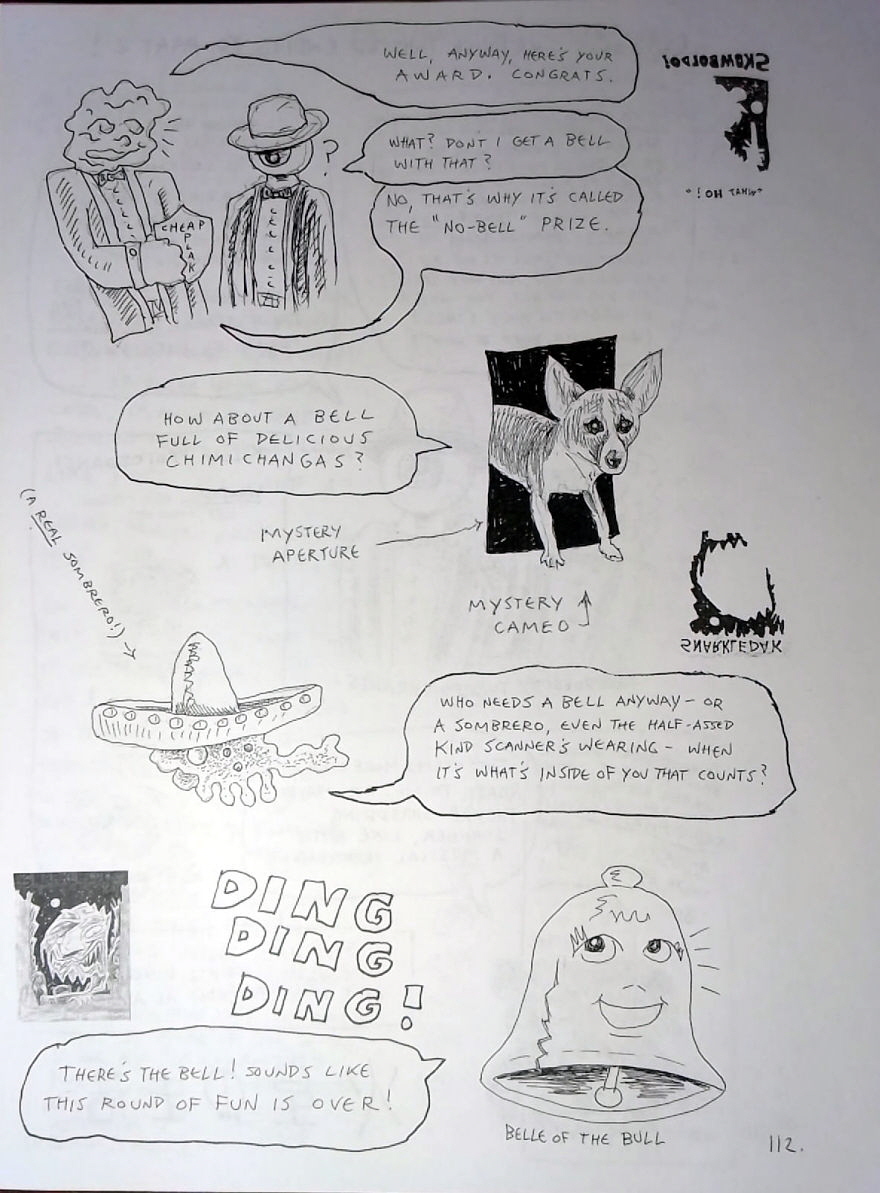 WELL, ANYWAY, HERE'S YOUR
AWARD. CONGRATS.
SKOMBOLDO!
"WHAT OH!"
WHAT? DON'T I GET A BELL
WITH THAT?
?
NO, THAT'S WHY IT'S CALLED
THE "NO-BELL" PRIZE.
CHEAP
PLAK
HOW ABOUT A BELL
FULL OF DELICIOUS
CHIMICHANGAS?
MYSTERY
APERTURE
MYSTERY
CAMEO
(A REAL SOMBRERO!)
SNARKLEDAK
WHO NEEDS A BELL ANYWAY – OR
A SOMBRERO, EVEN THE HALF-ASSED
KIND SCANNER'S WEARING – WHEN
IT'S WHAT'S INSIDE OF YOU THAT COUNTS?
DING
DING
DING!
THERE'S THE BELL! SOUNDS LIKE
THIS ROUND OF FUN IS OVER!
BELLE OF THE BULL
112.